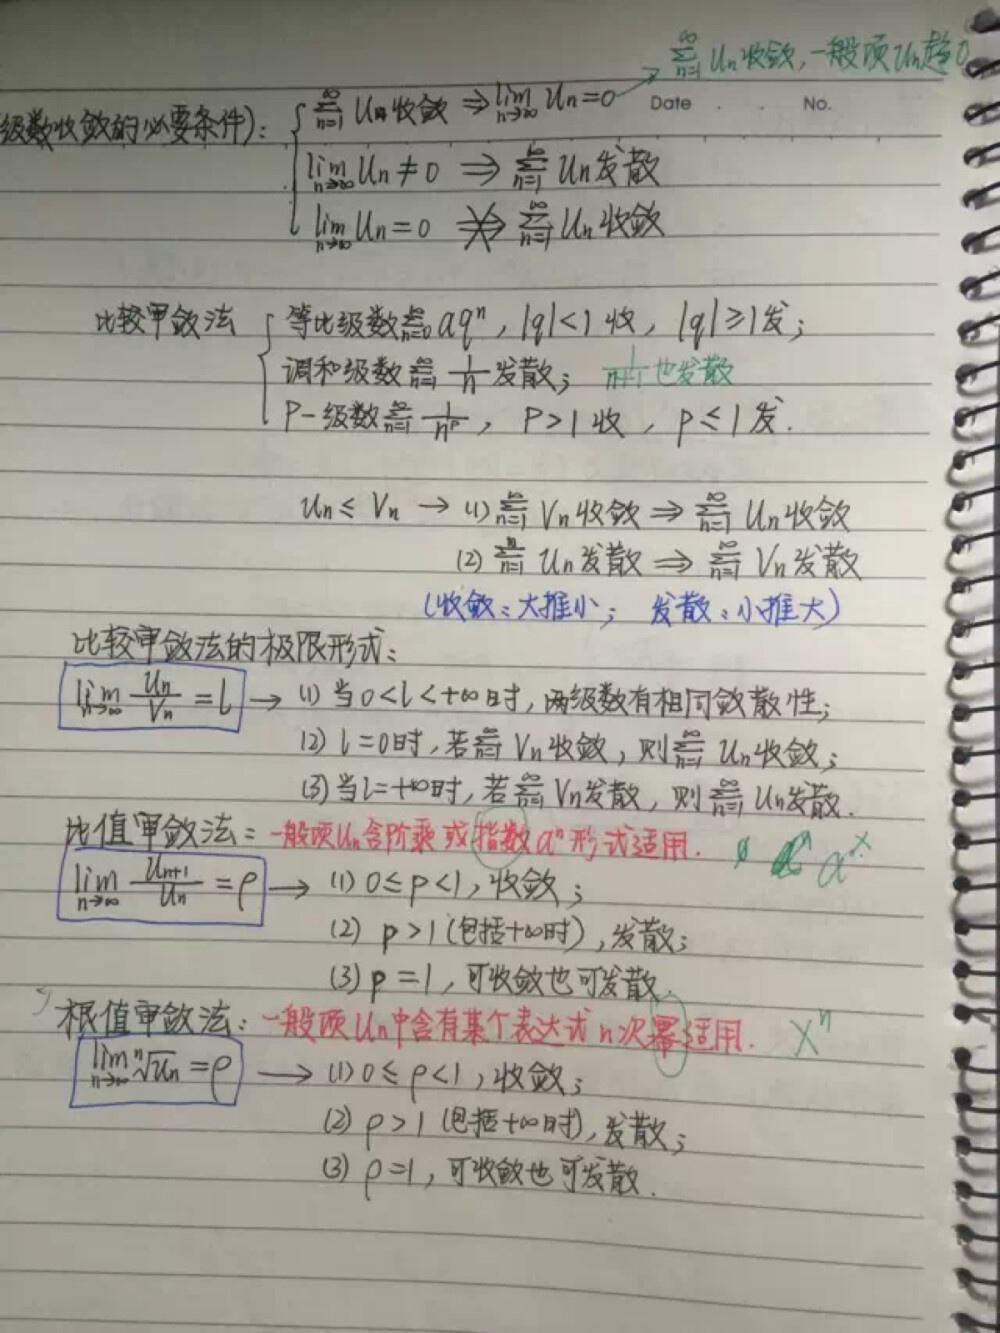 ∑_{n=1}^{∞} Un收敛,一般项Un趋0
Date . . No.
级数收敛的必要条件): ∑_{n=1}^{∞} Un收敛 ⇒ lim_{n→∞} Un=0
lim_{n→∞} Un≠0 ⇒ ∑_{n=1}^{∞} Un发散
lim_{n→∞} Un=0 ⇏ ∑_{n=1}^{∞} Un收敛
比较审敛法 { 等比级数∑_{n=0}^{∞} aqⁿ, |q|<1 收, |q|≥1发;
调和级数∑_{n=1}^{∞} 1/n 发散; 1/(n+1) 也发散
P-级数∑_{n=1}^{∞} 1/n^p, P>1 收, p≤1 发.
Un≤Vn → (1) ∑_{n=1}^{∞} Vn收敛 ⇒ ∑_{n=1}^{∞} Un收敛
(2) ∑_{n=1}^{∞} Un发散 ⇒ ∑_{n=1}^{∞} Vn发散
(收敛:大推小; 发散:小推大)
比较审敛法的极限形式:
lim_{n→∞} Un/Vn = l → (1) 当0<l<+∞时,两级数有相同敛散性;
(2) l=0时,若∑_{n=1}^{∞} Vn收敛,则∑_{n=1}^{∞} Un收敛;
(3) 当l=+∞时,若∑_{n=1}^{∞} Vn发散,则∑_{n=1}^{∞} Un发散.
比值审敛法:一般项Un含阶乘或指数aⁿ形式适用. a^x
lim_{n→∞} U_{n+1}/Un = ρ → (1) 0≤ρ<1,收敛;
(2) ρ>1(包括+∞时),发散;
(3) ρ=1,可收敛也可发散.
根值审敛法:一般项Un中含有某个表达式n次幂适用. xⁿ
lim_{n→∞} ⁿ√Un = ρ → (1) 0≤ρ<1,收敛;
(2) ρ>1(包括+∞时),发散;
(3) ρ=1,可收敛也可发散.